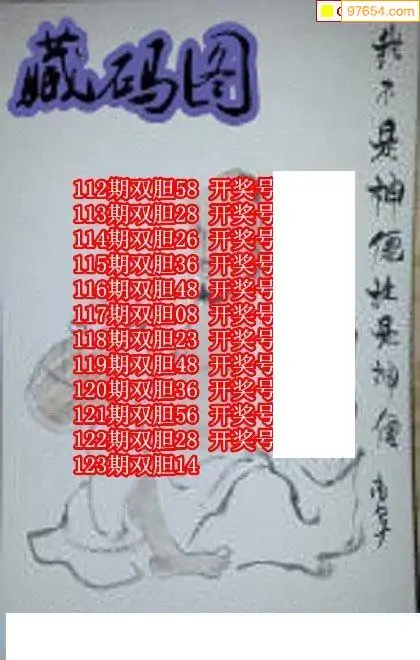 97654.com
藏码图
我不是神僊谁是神僊
112期双胆58 开奖号
113期双胆28 开奖号
114期双胆26 开奖号
115期双胆36 开奖号
116期双胆48 开奖号
117期双胆08 开奖号
118期双胆23 开奖号
119期双胆48 开奖号
120期双胆36 开奖号
121期双胆56 开奖号
122期双胆28 开奖号
123期双胆14